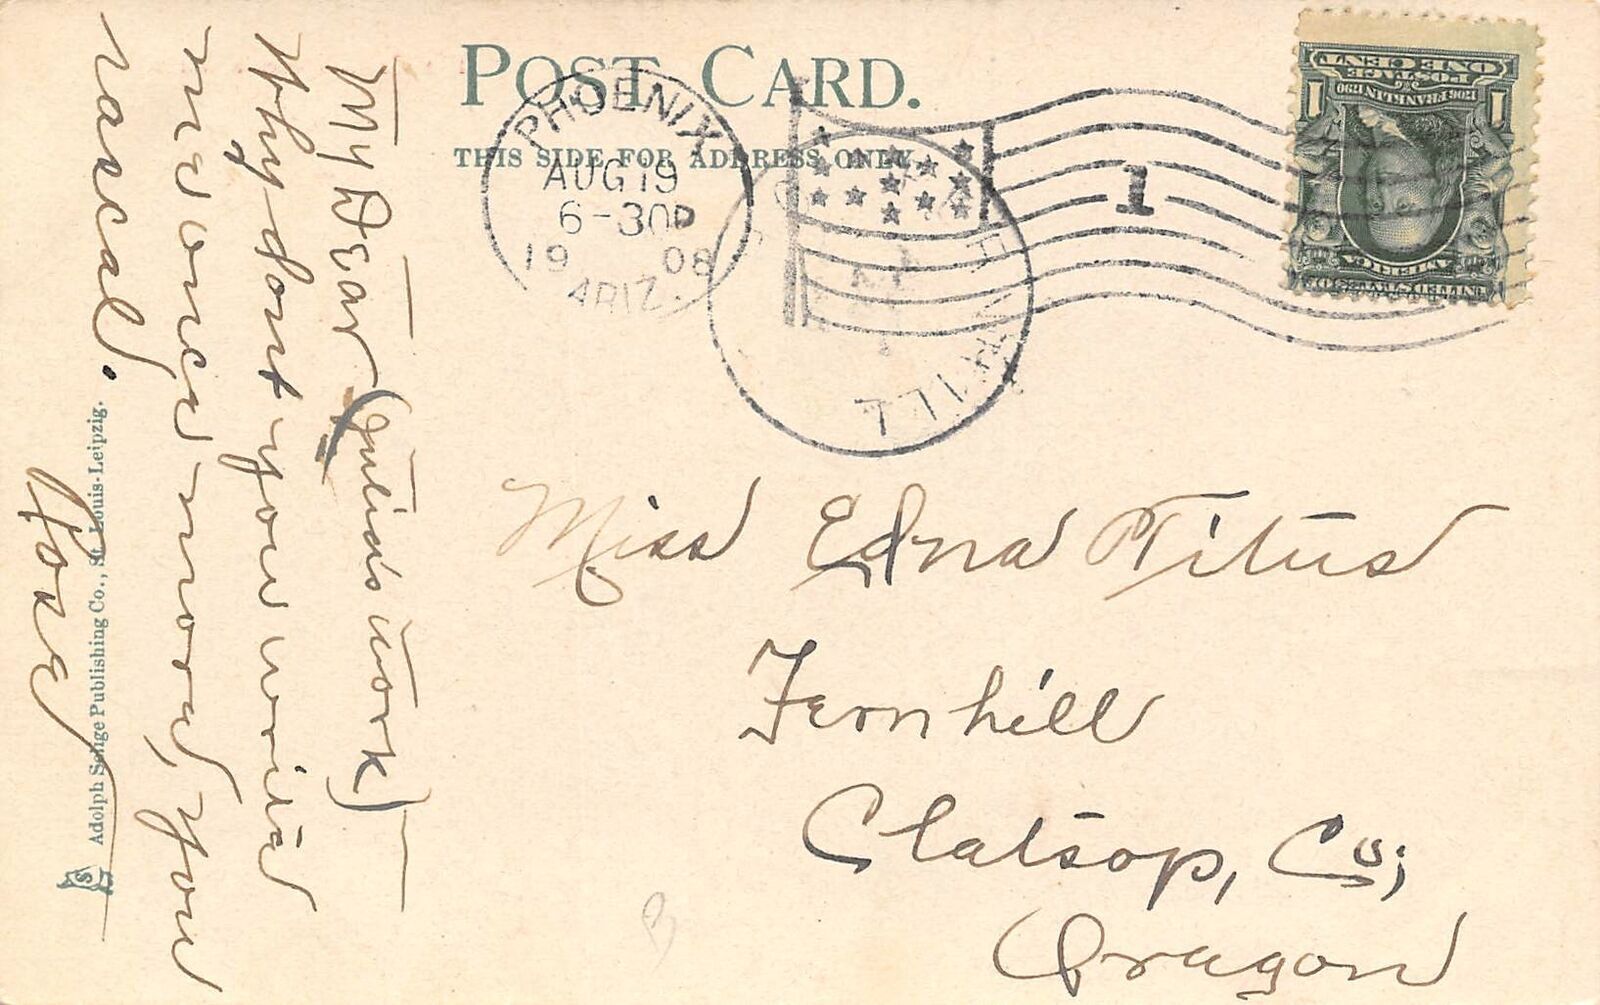 POST CARD.
THIS SIDE FOR ADDRESS ONLY
PHOENIX
AUG 19
6-30P
1908
ARIZ.
1
FERNHILL
1 ONE CENT 1
POSTAGE
1706 FRANKLIN 1790
UNITED STATES OF
AMERICA
My Dear (Julia's work)—
Why dont you write
me once more, you
rascal.
Rose
Miss Edna Titus
Fernhill
Clatsop, Co;
Oregon
Adolph Selige Publishing Co., St. Louis-Leipzig.
S
B